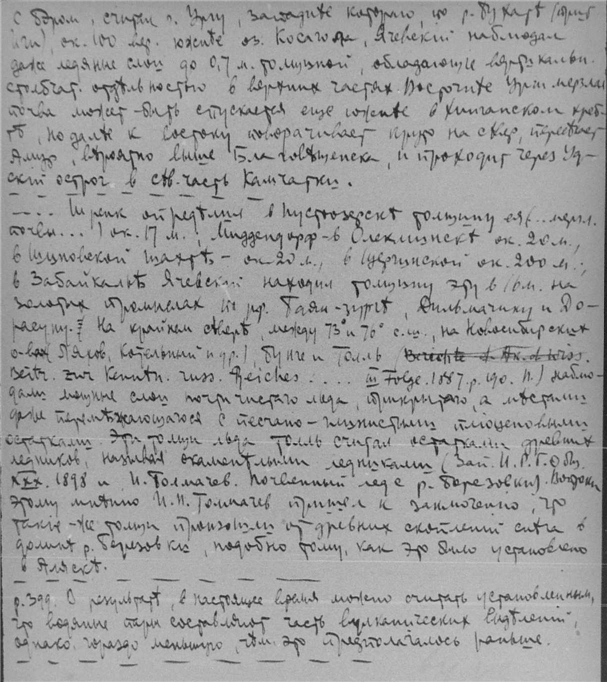 с бэром, считая р. Ургу, западнѣе котораго, по р. Бухагѣ (приток
Ичи), ок. 100 вер. южнѣе оз. Косогола, Ячевский наблюдал
даже ледяные слои до 0,7 м. толщиной, обладающие вертикальн.
столбчат. отдѣльностью в верхних частях. Восточнѣе Урги мерзлая
почва может быть спускается еще южнѣе в Хинганском хреб-
тѣ, но далѣе к востоку поворачивает круто на сѣвер, пересѣкает
Амур, вѣроятно выше Благовѣщенска, и проходит через Уд-
ский острог в сѣв. часть Камчатки.
.... Шренк опредѣлил в Пустозерскѣ толщину ея (.. мерзл.
почвы...) ок. 17 м.; Миддендорф - в Олекминскѣ ок. 20 м.,
в Шиловской шахтѣ - ок. 20 м., в Шергинской ок. 200 м.;
в Забайкальѣ Ячевский находил толщину эту в 16 м. на
золотых промыслах по рр.
На крайнем сѣверѣ, между 73° и 76° с.ш., на Новосибирских
о-вах (Ляхов, Котельный и др.), Бунге и Толль
Beitr. zur Kenntn. russ. Reiches .... III Folge. 1887. р. 190. П.) наблю-
дали мощные слои почти чистаго льда, прикрытаго, а мѣстами
даже перемѣжающагося с песчано-глинистыми плиоценовыми
остатками. Эти толщи льда Толль считал остатками древних
ледников, называя окаменѣлыми ледниками (Зап. И.Р.Г.О
XXX. 1898 и И. Толмачев. Почвенный лед с р. Березовки). Вопреки
этому мнѣнию И.П. Толмачев пришел к заключению, что
такие-же толщи произошли от древних скоплений снѣга в
долинѣ р. Березовки, подобно тому, как это было установлено
в Аляскѣ.
р. 399. В результатѣ, в настоящее время можно считать установленным,
что водяные пары составляют часть вулканических выдѣлений,
однако, гораздо меньшую, чѣм это предполагалось раньше.